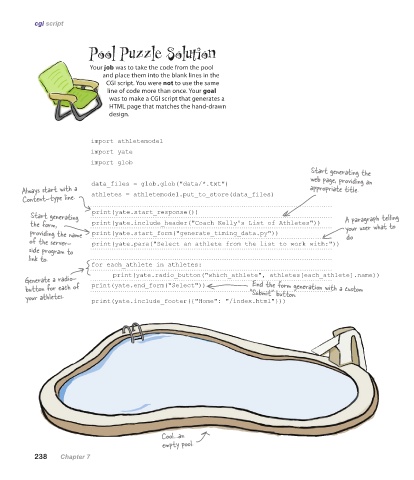 cgi script
Pool Puzzle Solution
Your job was to take the code from the pool
and place them into the blank lines in the
CGI script. You were not to use the same
line of code more than once. Your goal
was to make a CGI script that generates a
HTML page that matches the hand-drawn
design.
import athletemodel
import yate
import glob
data_files = glob.glob("data/*.txt")
athletes = athletemodel.put_to_store(data_files)
print(yate.start_response())
print(yate.include_header("Coach Kelly's List of Athletes"))
print(yate.start_form("generate_timing_data.py"))
print(yate.para("Select an athlete from the list to work with:"))
for each_athlete in athletes:
print(yate.radio_button("which_athlete", athletes[each_athlete].name))
print(yate.end_form("Select"))
print(yate.include_footer({"Home": "/index.html"}))
Always start with a
Content-type line.
Start generating
the form,
providing the name
of the server-
side program to
link to.
Generate a radio-
button for each of
your athletes.
Start generating the
web page, providing an
appropriate title.
A paragraph telling
your user what to
do
End the form generation with a custom
"Submit" button.
Cool...an
empty pool.
238 Chapter 7